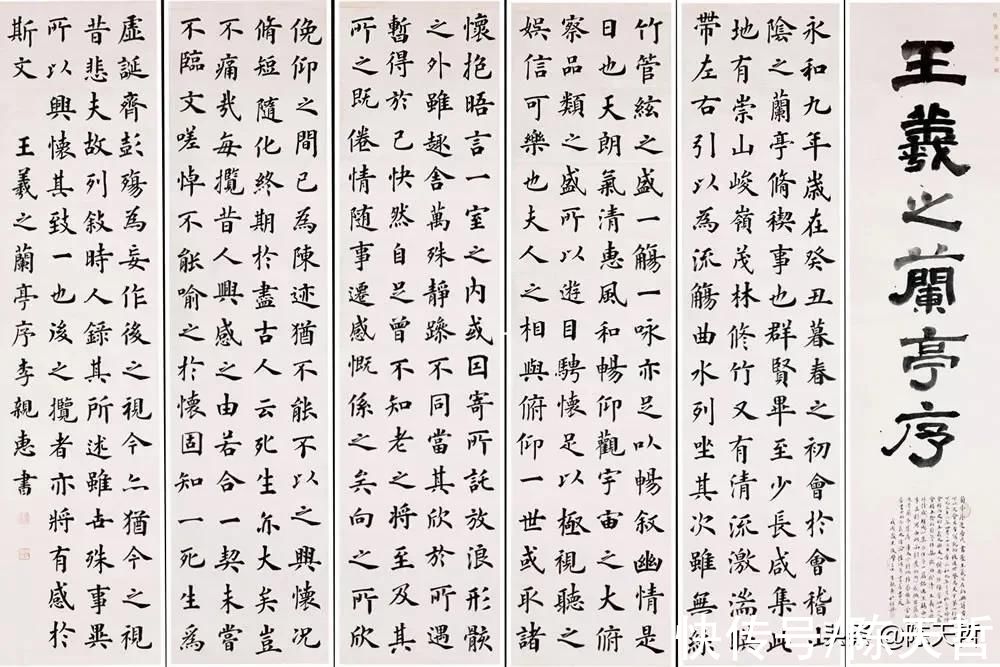 王羲之蘭亭序
永和九年歲在癸丑暮春之初會於會稽山
陰之蘭亭脩禊事也群賢畢至少長咸集此
地有崇山峻嶺茂林修竹又有清流激湍
帶左右引以為流觴曲水列坐其次雖無絲
竹管絃之盛一觴一咏亦足以暢敘幽情是
日也天朗氣清惠風和暢仰觀宇宙之大俯
察品類之盛所以遊目騁懷足以極視聽之
娛信可樂也夫人之相與俯仰一世或取諸
懷抱晤言一室之內或因寄所託放浪形骸
之外雖趣舍萬殊靜躁不同當其欣於所遇
暫得於己快然自足曾不知老之將至及其
所之既倦情随事遷感慨係之矣向之所欣
俛仰之間已為陳迹猶不能不以之興懷况
脩短隨化終期於盡古人云死生亦大矣豈
不痛哉每攬昔人興感之由若合一契未嘗
不臨文嗟悼不能喻之於懷固知一死生為
虛誕齊彭殤為妄作後之視今亦猶今之視
昔悲夫故列敘時人錄其所述雖世殊事異
所以興懷其致一也後之攬者亦將有感於
斯文 王羲之蘭亭序李親惠書
快传号/陈天哲
头条@陈天哲